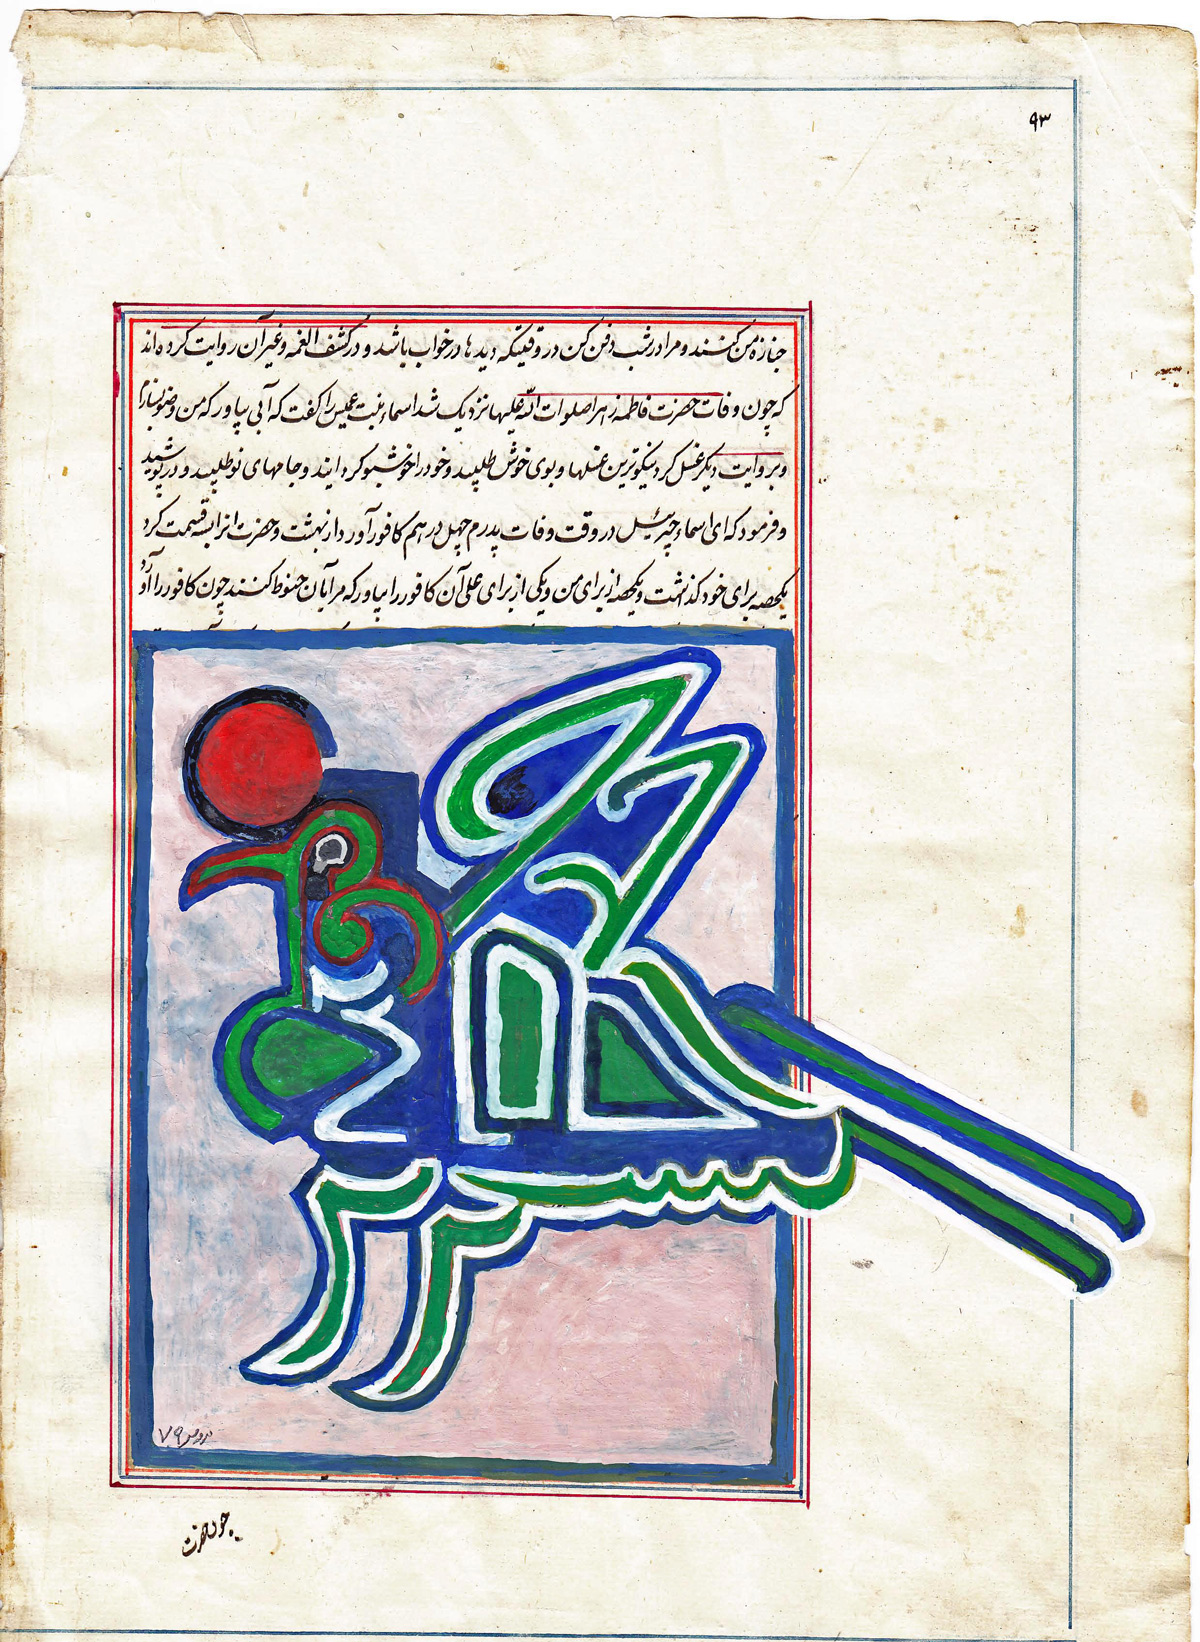 ۹۳
جنازه من کنند و مرا در شب دفن کن در وقتیکه دیدها در خواب باشد و در کشف الغمه و غیر آن روایت کرده اند
که چون وفات حضرت فاطمه زهرا صلوات الله علیها نزدیک شد اسماء بنت عمیس را کفت که آبی بیاور که من وضو بسازم
و بروایت دیکر غسل کرد نیکوترین غسلها و بوی خوش طلبید و خود را خوشبو کردانید و جامهای نو طلبید و در پوشید
و فرمود که ای اسماء جبرئیل در وقت وفات پدرم چهل درهم کافور آورد از بهشت و حضرت انرا سه قسمت کرد
یکحصه برای خود کذاشت و یکحصه از برای من و یکی از برای علی آن کافور را بیاور که مرا بآن حنوط کنند چون کافور را آورد
۷۹
چون حضرت